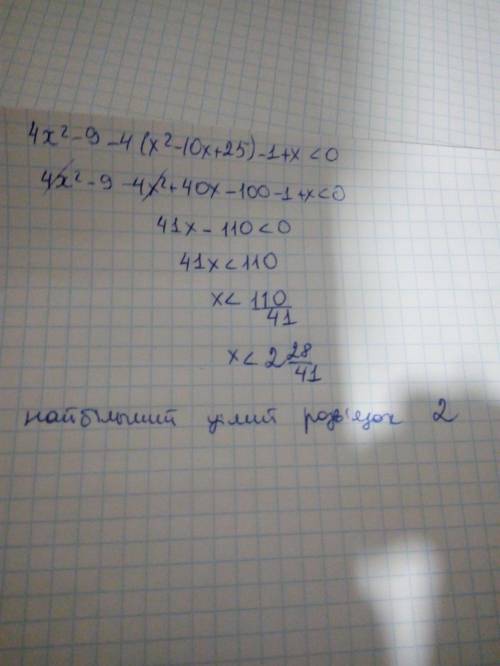 4x² - 9 - 4(x² - 10x + 25) - 1 + x < 0
4x² - 9 - 4x² + 40x - 100 - 1 + x < 0
41x - 110 < 0
41x < 110
x < 110/41
x < 2 28/41
найбільший цілий розв'язок 2